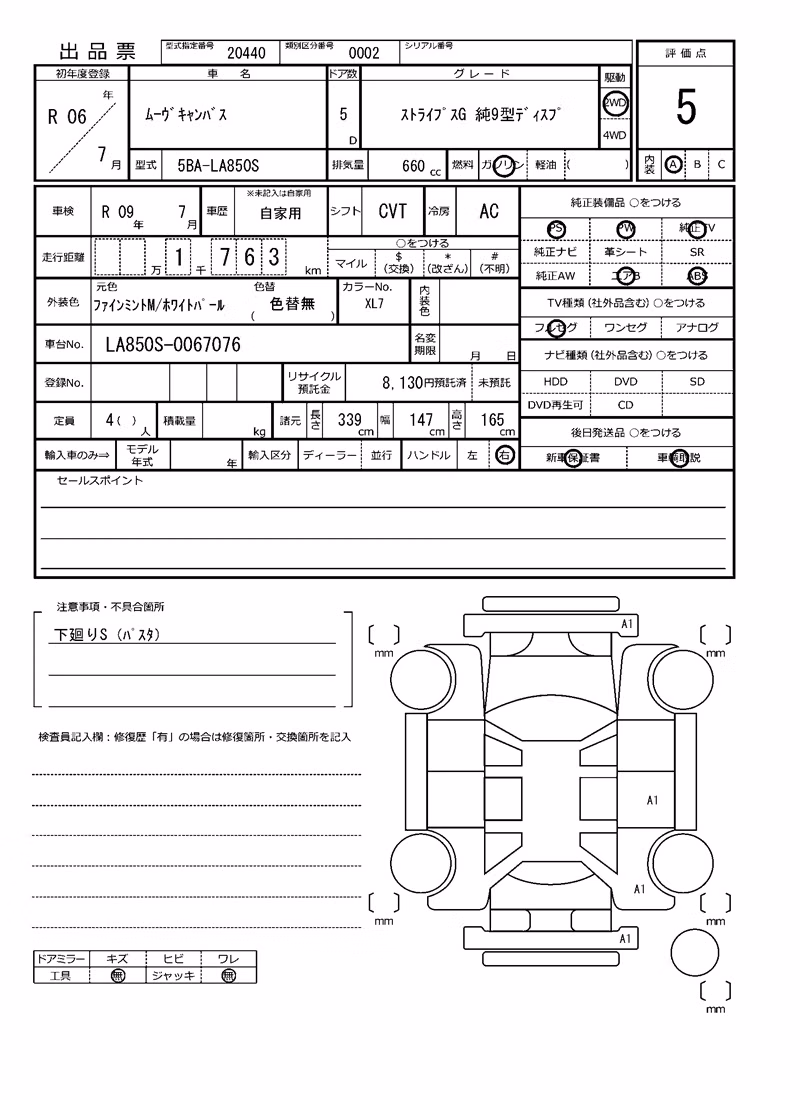 出品票 型式指定番号 20440 類別区分番号 0002 シリアル番号
評価点
5
初年度登録 車名 ドア数 グレード 駆動
R 06 年 7 月
ムーヴキャンバス 5 D ストライプスG 純9型ディスプ 2WD
4WD
型式 5BA-LA850S 排気量 660 cc 燃料 ガソリン 軽油 ( )
内装 A B C
車検 R 09 年 7 月 車歴 ※未記入は自家用 自家用 シフト CVT 冷房 AC
走行距離 万 1 千 7 6 3 km ○をつける
マイル $(交換) *(改ざん) #(不明)
外装色 元色 色替 カラーNo. 内装色
ファインミントM/ホワイトパール ( 色替無 ) XL7
車台No. LA850S-0067076 名変期限 月 日
登録No. リサイクル預託金 8,130円預託済 未預託
定員 4( ) 人 積載量 kg 諸元 長さ 339 cm 幅 147 cm 高さ 165 cm
輸入車のみ⇒ モデル年式 年 輸入区分 ディーラー 並行 ハンドル 左 右
純正装備品 ○をつける
PS PW 純正TV
純正ナビ 革シート SR
純正AW エアB ABS
TV種類(社外品含む) ○をつける
フルセグ ワンセグ アナログ
ナビ種類(社外品含む) ○をつける
HDD DVD SD
DVD再生可 CD
後日発送品 ○をつける
新車保証書 車輌取説
セールスポイント
注意事項・不具合箇所
下廻りS (パスタ)
検査員記入欄:修復歴「有」の場合は修復箇所・交換箇所を記入
ドアミラー キズ ヒビ ワレ
工具 無 ジャッキ 無
A1
mm mm
A1
A1
mm mm
A1
mm